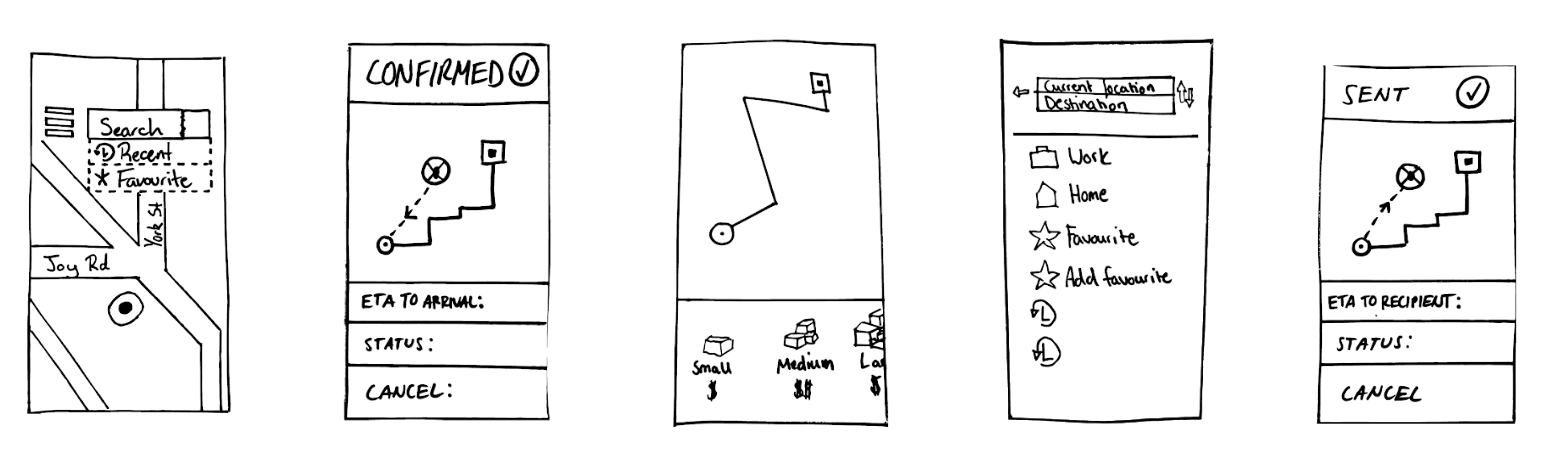 Search
Recent
Favourite
York St
Joy Rd
CONFIRMED
ETA TO ARRIVAL:
STATUS:
CANCEL:
Small
$
Medium
$$
La
$
Current location
Destination
Work
Home
Favourite
Add favourite
SENT
ETA TO RECIPIENT:
STATUS:
CANCEL